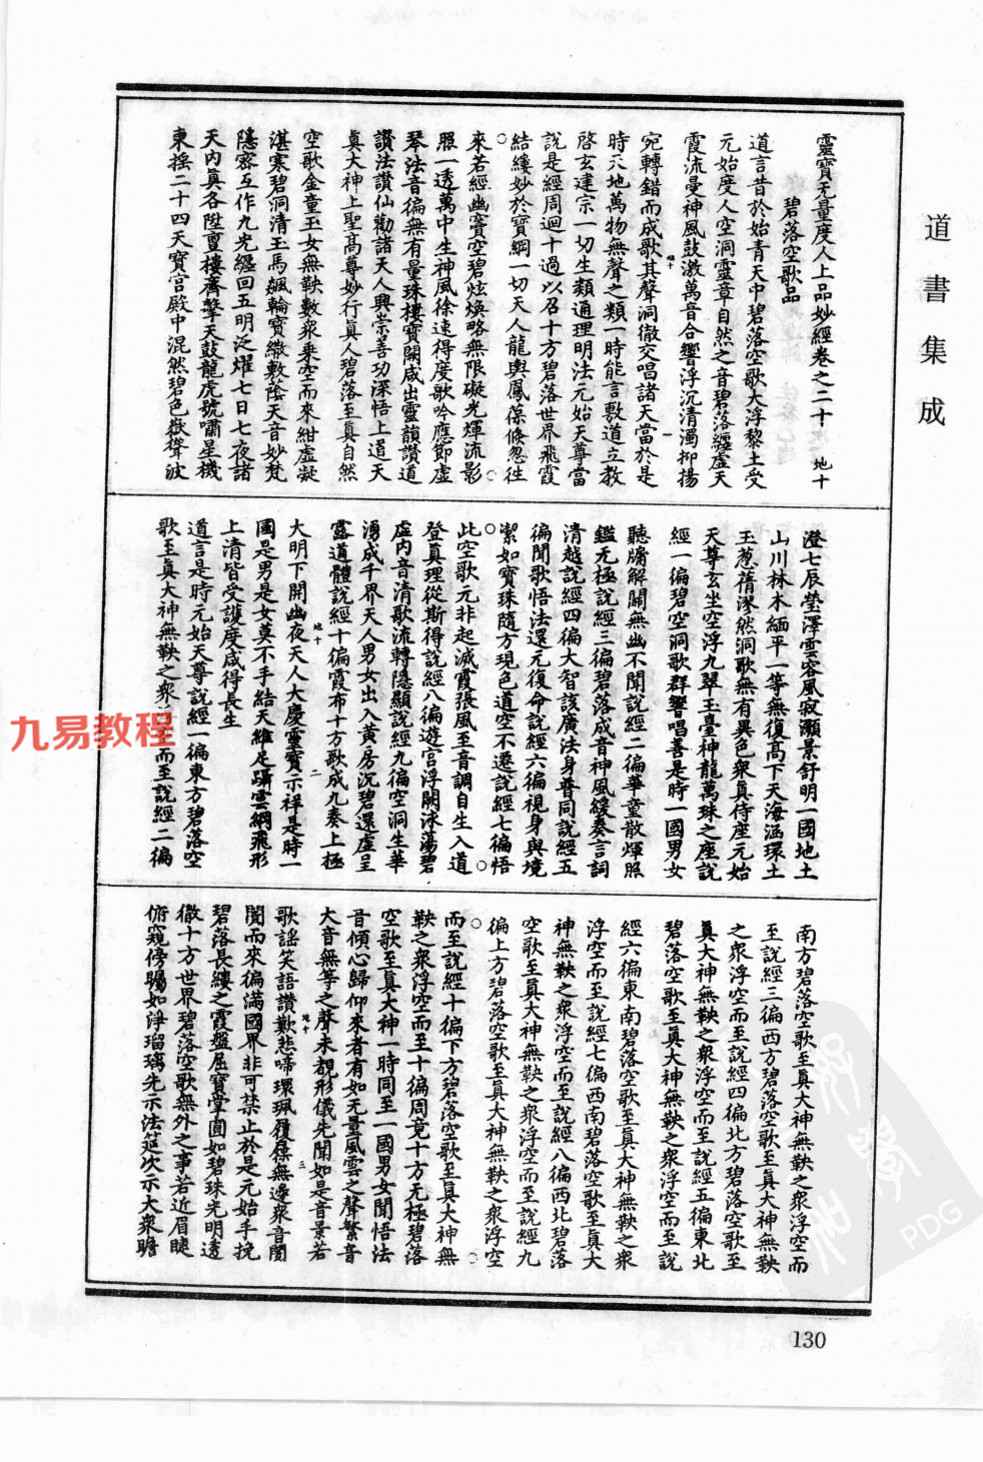 道書集成
靈寶无量度人上品妙經卷之二十 地十
碧落空歌品
道言昔於始青天中碧落空歌大浮黎土受
元始度人空洞靈章自然之音碧落纏虛天
霞流曼神風鼓激萬音合響浮沉清濁抑揚
宛轉錯而成歌其聲洞徹交唱諸天當於是
時天地萬物無聲之類一時能言敷道立教
啓玄建宗一切生類通理明法元始天尊當
說是經周迴十過以召十方碧落世界飛霞
結縷妙於寶綱一切天人龍輿鳳葆倏忽往
來若經幽賽空碧炫煥略無限礙光煇流影
照一透萬中生神風徐速得度歌吟應節虛
琴法音徧無有量珠樓寶闕咸出靈韻讚道
讚法讚仙勸諸天人興崇善功深悟上道天
真大神上聖高尊妙行真人碧落至真自然
空歌金童玉女無鞅數衆乘空而來紺虛凝
湛寒碧洞清玉馬飊輪寶繖敷蔭天音妙梵
隱密互作九光纒回五明泛燿七日七夜諸
天內真各陞亶樓齊擊天鼓龍虎號嘯星機
東摇二十四天寶宫殿中混然碧色嶽聳波
澄七辰瑩澤雲容風寂灝景舒明一國地土
山川林木緬平一等無復高下天海涵環土
玉葱蒨漻然洞歌無有異色衆真侍座元始
天尊玄坐空浮九翠玉臺神龍萬珠之座說
經一徧碧空洞歌群響唱善是時一國男女
聽牖解關無幽不聞說經二徧華童散煇照
鑑无極說經三徧碧落成音神風緩奏言詞
清越說經四徧大智該廣法身普同說經五
徧聞歌悟法還元復命說經六徧視身與境
潔如寶珠隨方現色道空不遷說經七徧悟
此空歌元非起滅霞張風至音調自生入道
登真理從斯得說經八徧遊宫浮闕泳蕩碧
虛内音清歌流轉隱顯說經九徧空洞生華
湧成千界天人男女出入黃房沉碧還虛呈
露道體說經十徧霞布十方歌成九奏上極
大明下開幽夜天人大慶靈寶示祥是時一
國是男是女莫不手結天維足躡雲綱飛形
上清皆受護度咸得長生
道言是時元始天尊說經一徧東方碧落空
歌至真大神無鞅之衆浮空而至說經二徧
南方碧落空歌至真大神無鞅之衆浮空而
至說經三徧西方碧落空歌至真大神無鞅
之衆浮空而至說經四徧北方碧落空歌至
真大神無鞅之衆浮空而至說經五徧東北
碧落空歌至真大神無鞅之衆浮空而至說
經六徧東南碧落空歌至真大神無鞅之衆
浮空而至說經七徧西南碧落空歌至真大
神無鞅之衆浮空而至說經八徧西北碧落
空歌至真大神無鞅之衆浮空而至說經九
徧上方碧落空歌至真大神無鞅之衆浮空
而至說經十徧下方碧落空歌至真大神無
鞅之衆浮空而至十徧周竟十方无極碧落
空歌至真大神一時同至一國男女聞悟法
音傾心歸仰來者有如无量風雲之聲繁音
大音無等之聲未覩形儀先聞如是音景若
歌謡笑語讚歎悲啼環珮履屧無邊衆音闐
閡而來徧滿國界非可禁止於是元始手挽
碧落長縷之霞盤屈寶堂圓如碧珠光明透
徹十方世界碧落空歌無外之事若近眉睫
俯窺傍矚如淨瑠璃先示法筵次示大衆瞻
九易教程
PDG
130